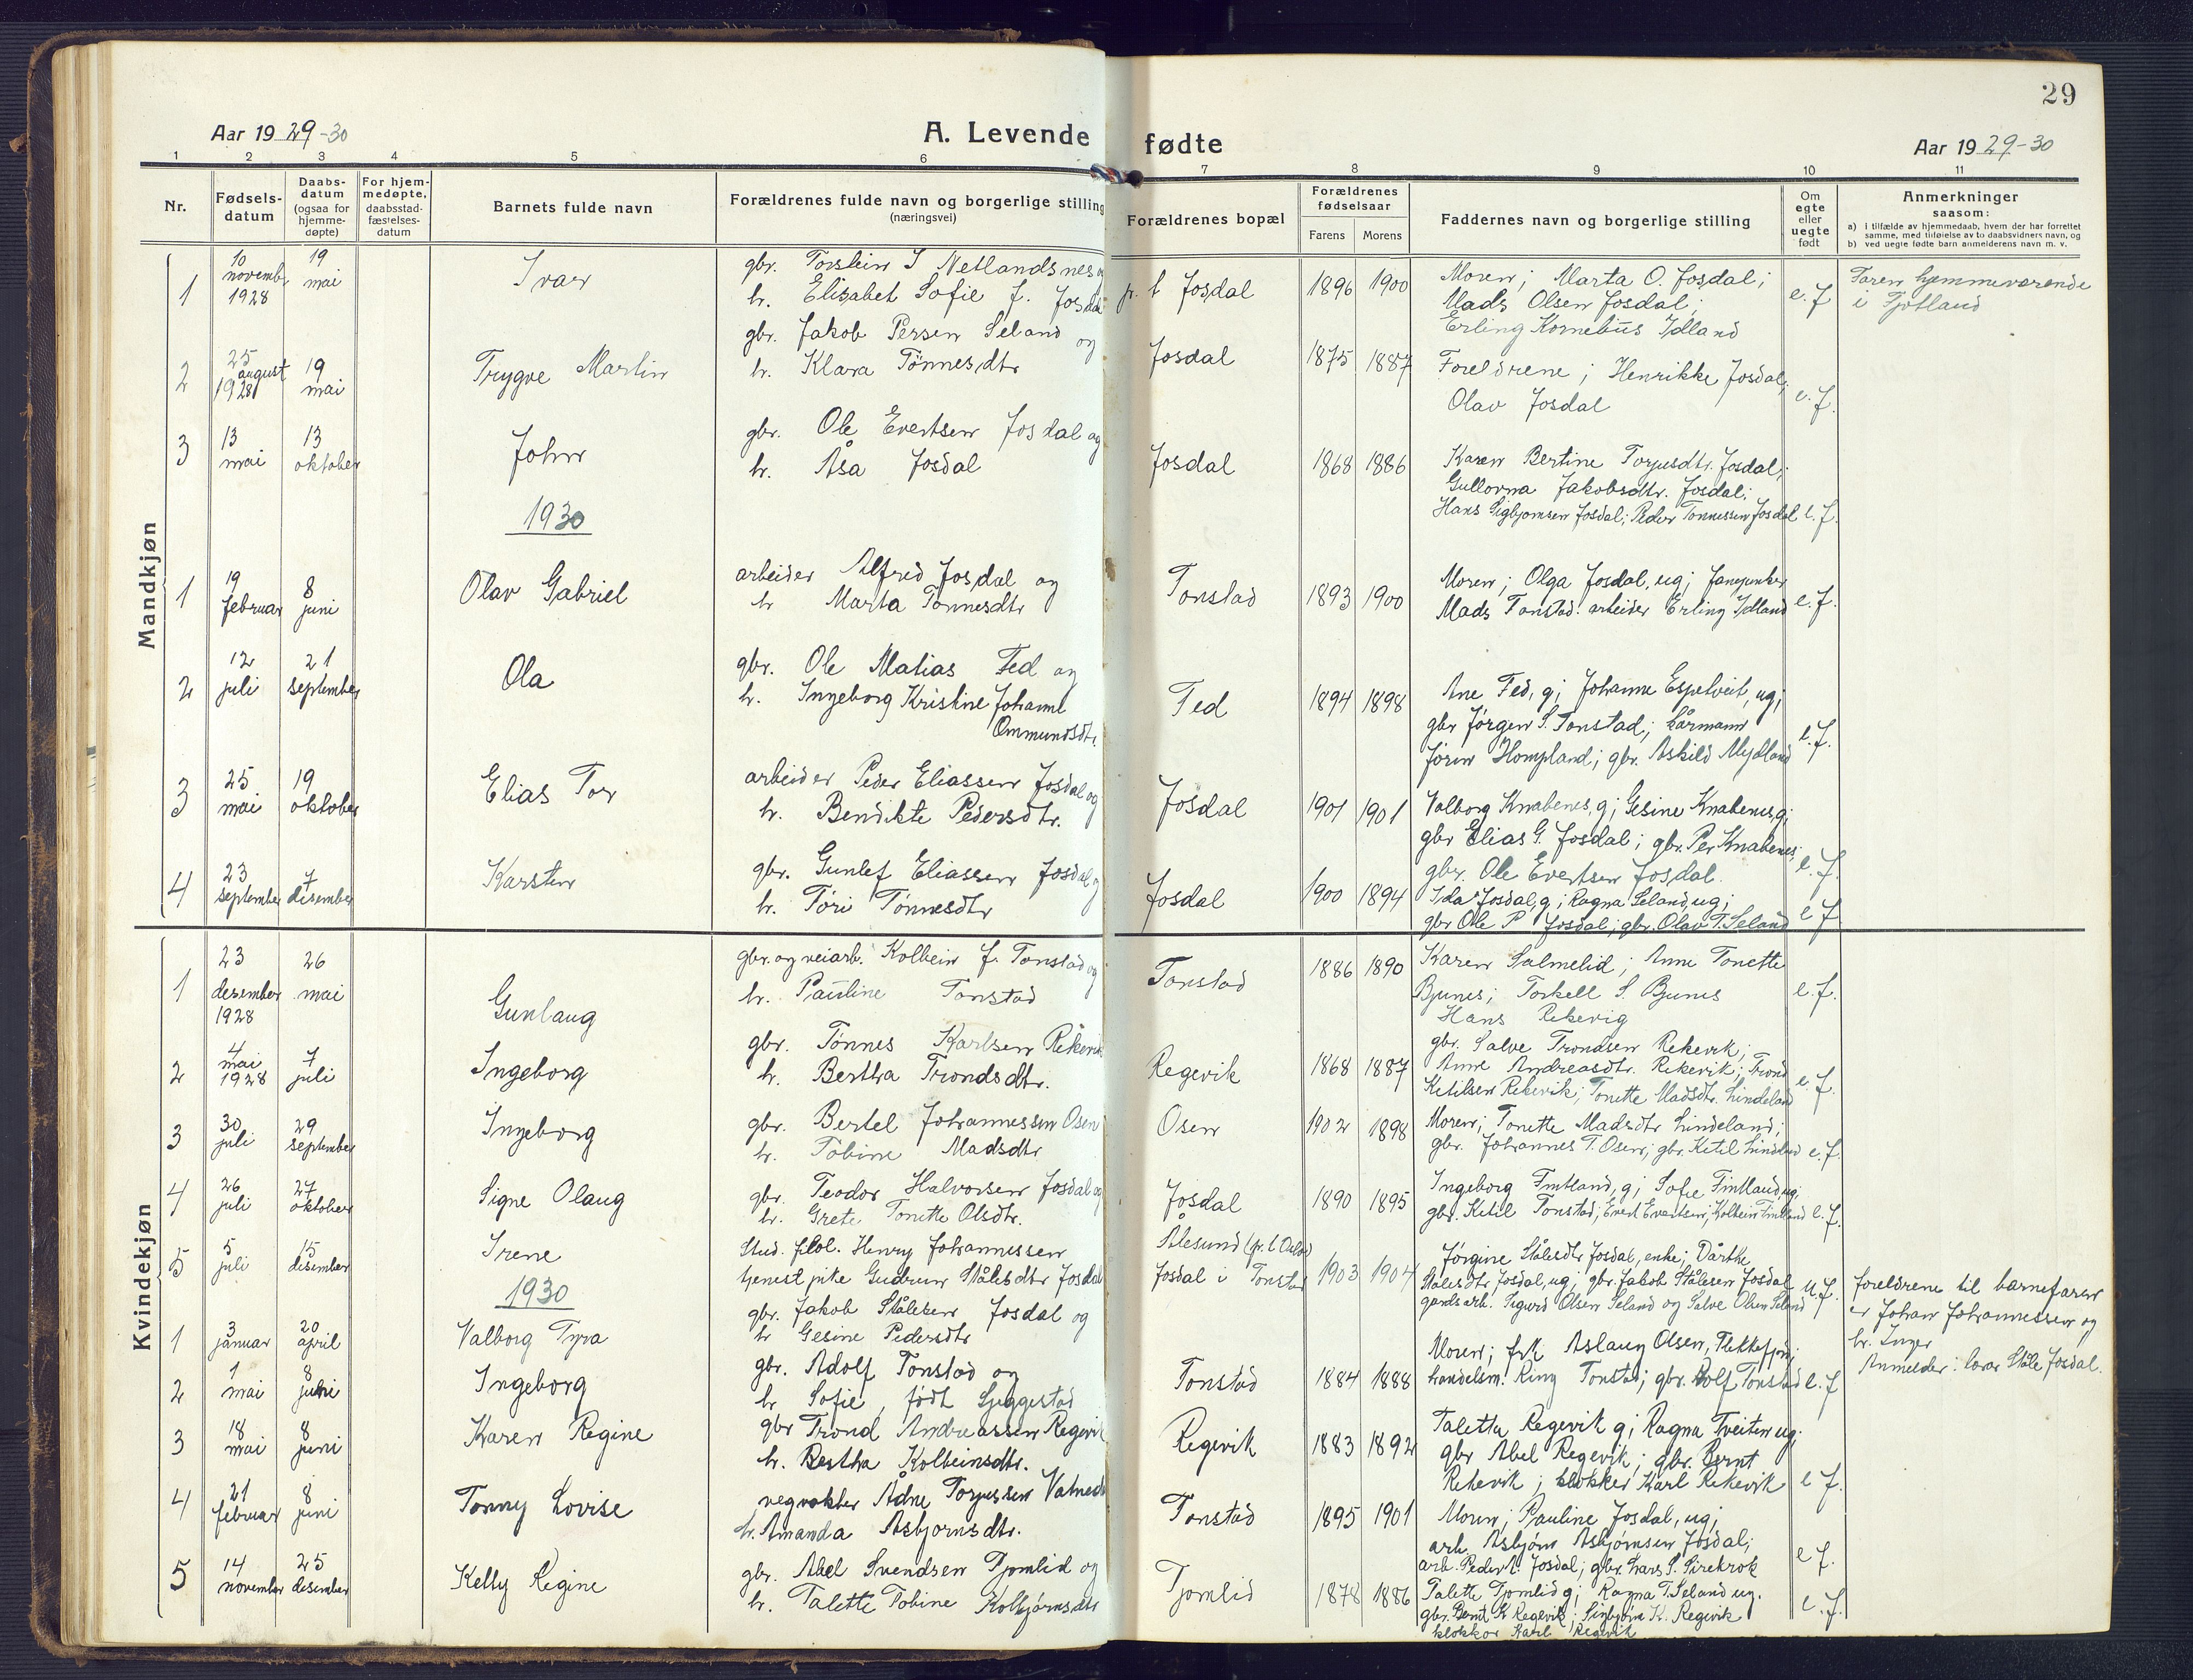 29
Aar 19 29-30
A. Levende
fødte
Aar 19 29-30
1 2 3 4 5 6 7 8 9 10 11
Nr.
Fødsels-
datum
Daabs-
datum
(ogsaa for
hjemme-
døpte)
For hjem-
medøpte,
daabsstad-
fæstelses-
datum
Barnets fulde navn
Forældrenes fulde navn og borgerlige stilling
(næringsvei)
Forældrenes bopæl
Forældrenes
fødselsaar
Farens Morens
Faddernes navn og borgerlige stilling
Om
egte
eller
uegte
født
Anmerkninger
saasom:
a) i tilfælde av hjemmedaab, hvem der har forrettet
samme, med tilføielse av to daabsvidners navn, og
b) ved uegte fødte barn anmelderens navn m. v.
Mandkjøn
1
10 novemb. 1928
19 mai
Ivar
gbr. Torstein I Netlandsnes og
h. Elisabet Sofie J. Josdal
p. t Josdal
1896 1900
Moren; Marta O. Josdal;
Mads Olsen Josdal;
Erling Kornelius Ydland
e. f
Faren hjemmeværende
i Tjotland
2
25 august 1928
19 mai
Trygve Martin
gbr. Jakob Persen Seland og
h. Klara Tønnesdtr
Josdal
1875 1887
Foreldrene; Henrikke Josdal;
Olav Josdal
e. f.
3
13 mai
13 oktober
John
gbr. Ole Evertsen Josdal og
h. Åsa Josdal
Josdal
1868 1886
Karen Bertine Torjusdtr. Josdal;
Gullorma Jakobsdtr. Josdal;
Hans Sigbjørnsen Josdal; Peder Tønnessen Josdal
e. f.
1930
1
19 februar
8 juni
Olav Gabriel
arbeider Alfred Josdal og
h Marta Tønnesdtr
Tonstad
1893 1900
Moren; Olga Josdal, ug;
Mads Tonstad. arbeider Erling Ydland
e. f.
2
12 juli
21 september
Ola
gbr. Ole Matias Fed og
h. Ingeborg Kristine Johanne
Ommundsdtr.
Fed
1894 1898
Ane Fed, g; Johanne Espetveit, ug;
gbr Jørgen S. Tonstad;
Jørin Hompland; gbr. Askild Mydland
e. f.
3
25 mai
19 oktober
Elias Tor
arbeider Peder Eliassen Josdal og
h. Bendikte Pedersdtr.
Josdal
1901 1901
Valborg Knabenes, g; Gesine Knabenes, g;
gbr Elias G. Josdal; gbr. Per Knabenes;
gbr. Ole Evertsen Josdal.
e. f.
4
23 september
7 desember
Karsten
gbr. Gunlef Eliassen Josdal og
h. Tori Tønnesdtr
Josdal
1900 1894
Ida Josdal, g; Ragna Seland, ug;
gbr Ole P Josdal; gbr. Olav T. Seland
e f
Kvindekjøn
1
23 desember 1928
26 mai
Gunlaug
gbr. og veiarb. Kolbein J. Tonstad og
h. Pauline Tonstad
Tonstad
1886 1890
Karen Salmelid; Anne Tonette
Bjunes; Torkell S. Bjunes
Hans Rekevig
e. f.
2
4 mai 1928
7 juli
Ingeborg
gbr. Tønnes Karlsen Rekevik
h. Bertha Trondsdtr.
Regevik
1868 1887
gbr. Salve Trondsen Rekevik;
Anne Andreasdtr. Rekevik; Trond
Ketilsen Rekevik; Tonette Madsdtr. Lindeland
e. f.
3
30 juli
29 september
Ingeborg
gbr. Bertel Johannessen Osen
h. Tobine Madsdtr
Osen
1902 1898
Moren; Tonette Madsdtr Lindeland;
gbr. Johannes T. Osen; gbr. Ketil Lindeland
e. f.
4
26 juli
27 oktober
Signe Olaug
gbr. Teodor Halvorsen Josdal og
h. Grete Tonette Olsdtr.
Josdal
1890 1895
Ingeborg Fintland, g; Sofie Fintland, ug;
gbr. Ketil Tonstad; Evert Evertsen; Kolbein Fintland
e. f.
5
5 juli
15 desember
Irene
Stud. filol. Henry Johannessen
tjenestpike Gudrun Stålesdtr Josdal
Ålesund (p. t Oslo)
Josdal i Tonstad
1903 1904
Jørgine Stålesdtr Josdal, enke; Dårthe
Stålesdtr Josdal, ug; gbr. Jakob Stålesen Josdal
gardsarb. Sigurd Olsen Seland og Salve Olsen Seland
u. f.
foreldrene til barnefaren
er Johan Johannessen og
h. Inger
Anmelder: Ståle Josdal.
1930
1
3 januar
20 april
Valborg Tyra
gbr. Jakob Stålesen Josdal og
h Gesine Pedersdtr
2
1 mai
8 juni
Ingeborg
gbr. Adolf Tonstad og
h Sofie, født Seggestad
Tonstad
1884 1888
Moren; frk Aslaug Olsen, Flekkefjord;
handelsm. King Tonstad; gbr. Rolf Tonstad
e. f
3
18 mai
8 juni
Karen Regine
gbr Trond Andreassen Regevik
h. Bertha Kolbeinsdtr.
Regevik
1883 1892
Taletta Regevik g; Ragna Tveiten ug;
gbr Abel Regevik; gbr. Bernt
Rekevik; klokker Karl Rekevik
e f.
4
21 februar
8 juni
Tonny Lovise
vegvokter Ådne Torjussen Vatnedal
h. Amanda Asbjørnsdtr.
Tonstad
1895 1901
Moren; Pauline Josdal, ug;
arb. Asbjørn Asbjørnsen Josdal;
arb. Peder A. Josdal; gbr. Lars S. Sirekrok
e f.
5
14 november
25 desember
Kelly Regine
gbr. Abel Svendsen Tjomlid og
h. Talette Tobine Kolbjørnsdtr
Tjomlid
1878 1886
Talette Tjomlid g; Ragna T. Seland ug.
gbr. Bernt K Regevik; Sigbjørn K. Regevik
klokker Karl Regevik
e. f.